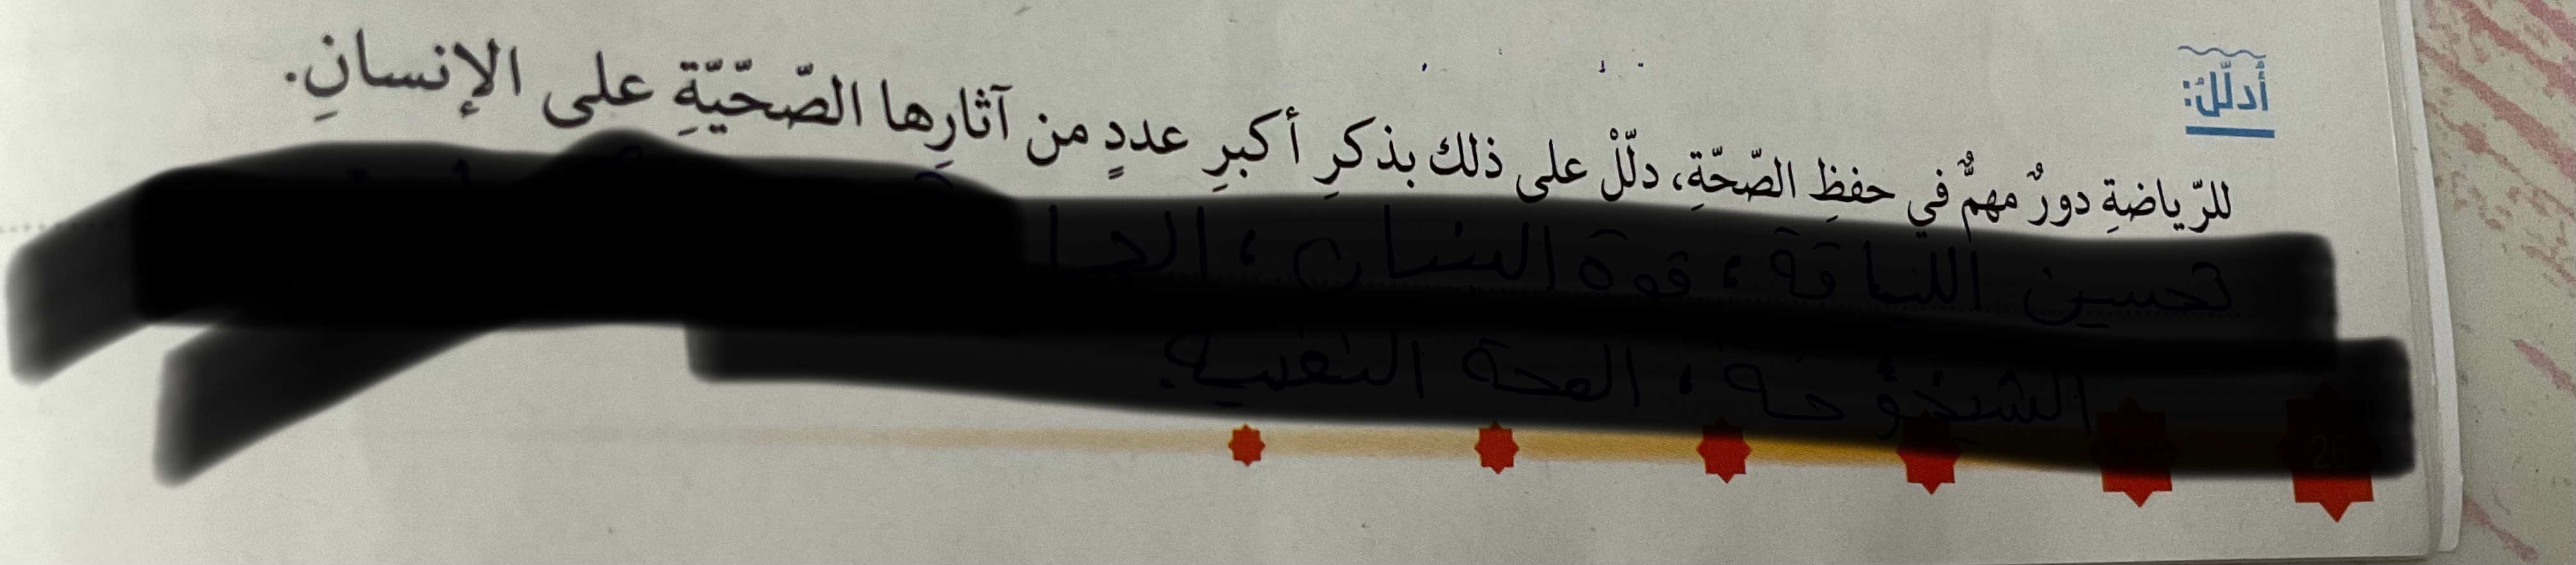 أدلّلُ:
للرّياضةِ دورٌ مهمٌّ في حفظِ الصّحّةِ، دلّلْ على ذلك بذكرِ أكبرِ عددٍ من آثارِها الصّحّيّةِ على الإنسانِ.
تحسين اللياقة ، قوة
الشيخوخة ، الصحة النفسية.
26